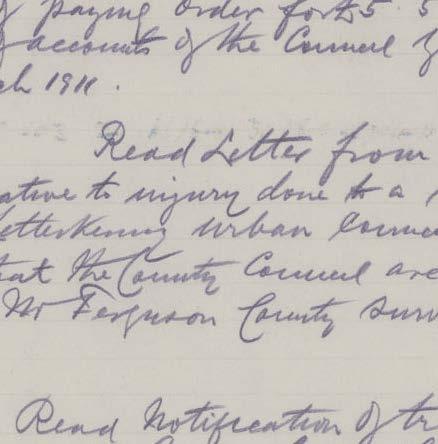 paying Order for £5. 5
accounts of the Council
ch 1911.
Read Letter from
ative to injury done to a
etterkenny Urban Counc
hat the County Council are
Mr Ferguson County Surv
Read Notification of tr